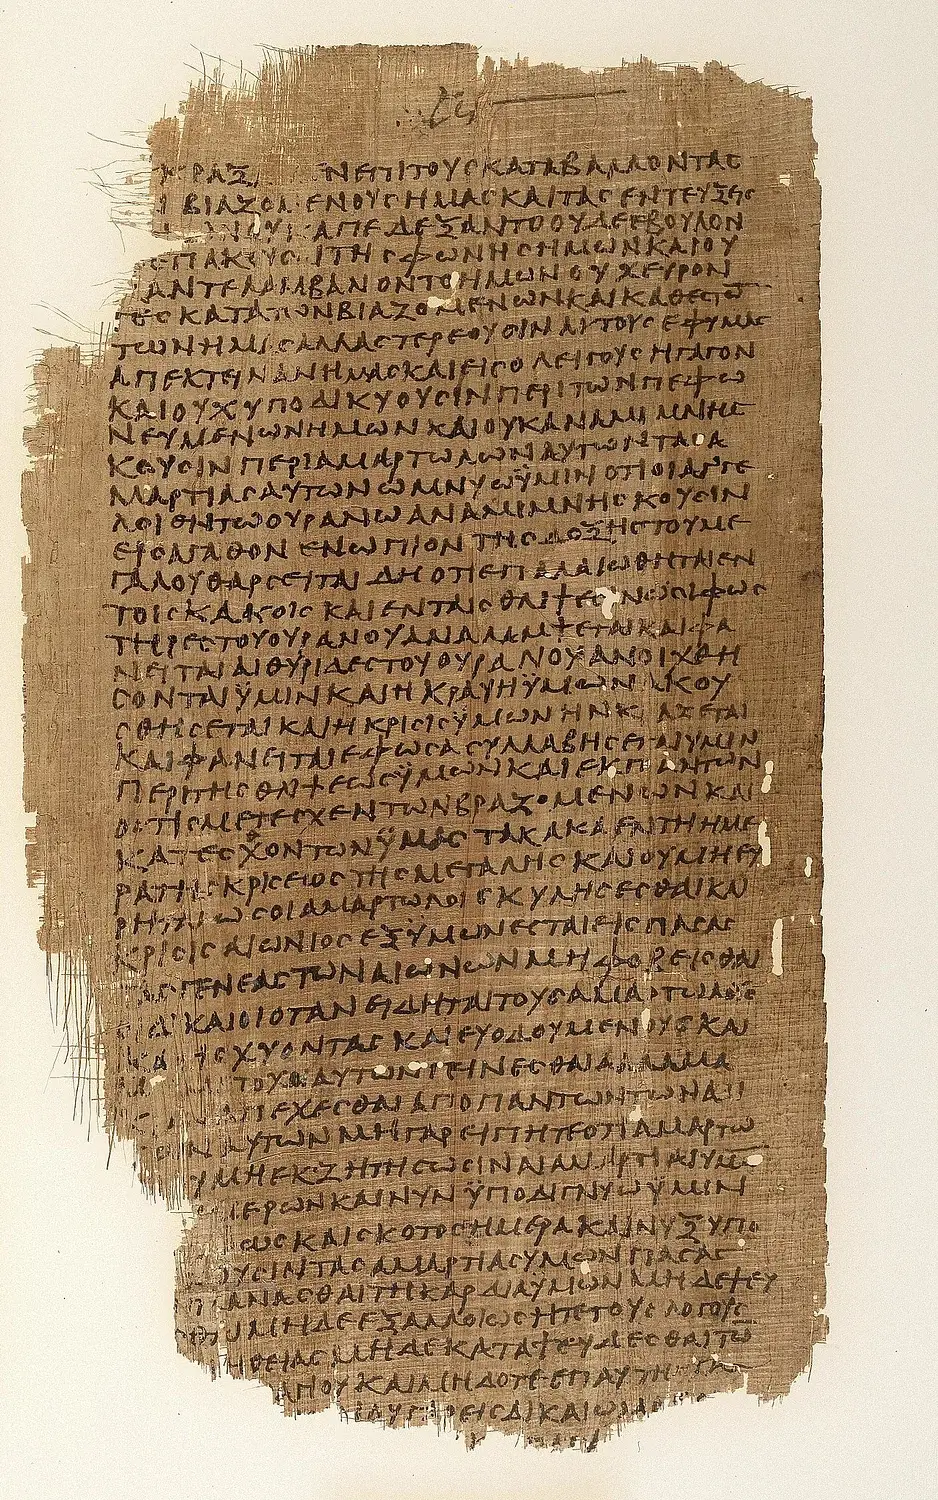 ΝΕΠΙΤΟΥΣΚΑΤΑΒΑΛΛΟΝΤΑΣ
ΕΝΟΥΣΗΜΑΣΚΑΙΤΑΣΕΝΤΕΥΞΕΙΣ
ΑΠΕΔΕΞΑΝΤΟΟΥΔΕΕΒΟΥΛΟΝ
ΙΤΗΣΦΩΝΗΣΗΜΩΝΚΑΙΟΥ
ΑΝΤΕΛΑΜΒΑΝΟΝΤΟΗΜΩΝΟΥΧΕΥΡΟΝ
ΤΕΣΚΑΤΑΤΩΝΒΙΑΖΟΜΕΝΩΝΚΑΙΚΑΘΕΣΤΩ̅
ΤΩΝΗΜΑΣΑΛΛΑΣΤΕΡΕΟΥΣΙΝΑΥΤΟΥΣΕΦΥΜΑΣ
ΑΠΕΚΤΕΙΝΑΝΗΜΑΣΚΑΙΕΙΣΟΛΕΙΓΟΥΣΗΓΑΓΟΝ
ΚΑΙΟΥΧΥΠΟΔΙΚΥΟΥΣΙΝΠΕΡΙΤΩΝΠΕΦΩ
ΝΕΥΜΕΝΩΝΗΜΩΝΚΑΙΟΥΚΑΝΑΜΙΜΝΗΣ
ΚΟΥΣΙΝΠΕΡΙΑΜΑΡΤΩΛΩΝΑΥΤΩΝΤΑΣΑ
ΜΑΡΤΙΑΣΑΥΤΩΝΩΜΝΥΩΫΜΙΝΟΤΙΟΙΑΓΓΕ
ΛΟΙΕΝΤΩΟΥΡΑΝΩΑΝΑΜΙΜΝΗΣΚΟΥΣΙΝ
ΕΙΣΑΓΑΘΟΝΕΝΩΠΙΟΝΤΗΣΔΟΞΗΣΤΟΥΜΕ
ΓΑΛΟΥΘΑΡΣΕΙΤΑΙΔΗΟΤΙΕΠΑΛΑΙΩΘΗΤΑΙΕΝ
ΤΟΙΣΚΑΚΟΙΣΚΑΙΕΝΤΑΙΣΘΛΙΨΕΣΙΝΩΣΙΦΩΣ
ΤΗΡΕΣΤΟΥΟΥΡΑΝΟΥΑΝΑΛΑΜΨΕΤΑΙΚΑΙΦΑ
ΝΕΙΤΑΙΑΙΘΥΡΙΔΕΣΤΟΥΟΥΡΑΝΟΥΑΝΟΙΧΘΗ
ΣΟΝΤΑΙΫΜΙΝΚΑΙΗΚΡΑΥΗΫΜΩΝΑΚΟΥ
ΣΘΗΣΕΤΑΙΚΑΙΗΚΡΙΣΙΣΫΜΩΝΗΝΚΡΑΖΕΤΑΙ
ΚΑΙΦΑΝΕΙΤΑΙΕΦΩΣΑΣΥΛΛΑΒΗΣΕΤΑΙΥΜΙΝ
ΠΕΡΙΤΗΣΘΛΙΨΕΩΣΫΜΩΝΚΑΙΕΚΠΑΝΤΩΝ
ΟΣΤΙΣΜΕΤΕΣΧΕΝΤΩΝΒΡΑΖΟΜΕΝΩΝΚΑΙ
ΚΑΤΕΣΧΟΝΤΩΝΫΜΑΣΤΑΚΑΚΑΕΝΤΗΗΜΕ
ΡΑΤΗΣΚΡΙΣΕΩΣΤΗΣΜΕΓΑΛΗΣΚΑΙΟΥΜΗΕΥ
ΡΗΤΑΙΩΣΟΙΑΜΑΡΤΩΛΟΙΣΚΥΛΗΣΕΣΘΑΙΚΑΙ
ΚΡΙΣΙΣΑΙΩΝΙΟΣΕΞΫΜΩΝΕΣΤΑΙΕΙΣΠΑΣΑΣ
ΤΑΣΓΕΝΕΑΣΤΩΝΑΙΩΝΩΝΜΗΦΟΒΕΙΣΘΑΙ
ΟΙΔΙΚΑΙΟΙΟΤΑΝΕΙΔΗΤΑΙΤΟΥΣΑΜΑΡΤΩΛΟΥΣ
ΣΧΥΟΝΤΑΣΚΑΙΕΥΟΔΟΥΜΕΝΟΥΣΚΑΙ
ΤΟΧΟΙΑΥΤΩΝΓΕΙΝΕΣΘΑΙΑΛΛΑΜΑ
ΑΠΕΧΕΣΘΑΙΑΠΟΠΑΝΤΩΝΤΩΝΑΔΙ
ΑΥΤΩΝΜΗΓΑΡΕΙΠΗΤΕΟΤΙΑΜΑΡΤΩ
ΥΜΗΕΚΖΗΤΗΣΩΣΙΝΑΙΑΜΑΡΤΙΑΙΥΜΩ̅
ΜΕΡΩΝΚΑΙΝΥΝΫΠΟΔΙΓΝΥΩΫΜΙΝ
ΩΣΚΑΙΣΚΟΤΟΣΗΜΕΡΑΚΑΙΝΥΞ
ΟΥΣΙΝΤΑΣΑΜΑΡΤΙΑΣΥΜΩΝΠΑΣΑΣ
ΠΛΑΝΑΣΘΑΙΤΗΚΑΡΔΙΑΥΜΩΝΜΗΔΕΨΕΥ
ΜΗΔΕΕΞΑΛΛΟΙΩΣΗΤΕΤΟΥΣΛΟΓΟΥΣ
ΗΘΕΙΑΣΜΗΔΕΚΑΤΑΨΕΥΔΕΣΘΑΙΤΩ̅
ΓΙΟΥΚΑΙΜΗΔΟΤΕΕΠΑΥΤΗ
ΕΙΣΔΙΚΑΙΩΜΑ